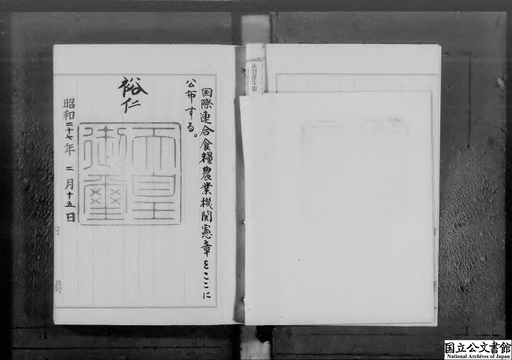 国際連合食糧農業機関憲章をここに
公布する。
裕仁
天皇
御璽
昭和二十七年二月十五日
国立公文書館
National Archives of Japan